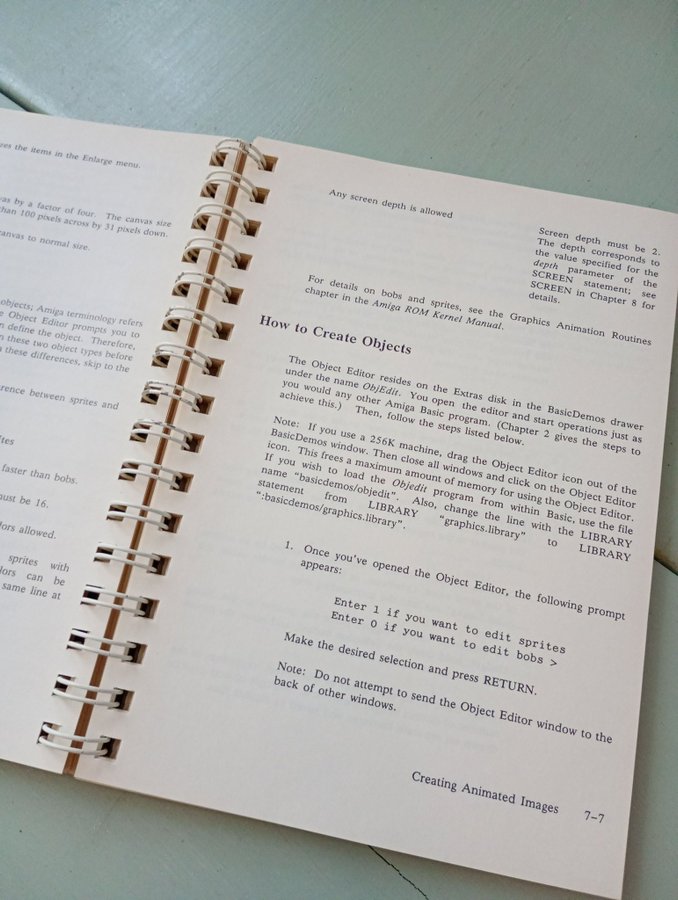 zes the items in the Enlarge menu.
vas by a factor of four. The canvas size
than 100 pixels across by 31 pixels down.
canvas to normal size.
objects; Amiga terminology refers
e Object Editor prompts you to
n define the object. Therefore,
n these two object types before
n these differences, skip to the
rence between sprites and
ites
faster than bobs.
must be 16.
lors allowed.
sprites with
lors can be
same line at
Any screen depth is allowed
Screen depth must be 2.
The depth corresponds to
the value specified for the
depth parameter of the
SCREEN statement; see
SCREEN in Chapter 8 for
details.
For details on bobs and sprites, see the Graphics Animation Routines
chapter in the Amiga ROM Kernel Manual.
How to Create Objects
The Object Editor resides on the Extras disk in the BasicDemos drawer
under the name ObjEdit. You open the editor and start operations just as
you would any other Amiga Basic program. (Chapter 2 gives the steps to
achieve this.) Then, follow the steps listed below.
Note: If you use a 256K machine, drag the Object Editor icon out of the
BasicDemos window. Then close all windows and click on the Object Editor
icon. This frees a maximum amount of memory for using the Object Editor.
If you wish to load the Objedit program from within Basic, use the file
name "basicdemos/objedit". Also, change the line with the LIBRARY
statement from LIBRARY "graphics.library" to LIBRARY
":basicdemos/graphics.library".
1. Once you've opened the Object Editor, the following prompt
appears:
Enter 1 if you want to edit sprites
Enter 0 if you want to edit bobs >
Make the desired selection and press RETURN.
Note: Do not attempt to send the Object Editor window to the
back of other windows.
Creating Animated Images 7-7